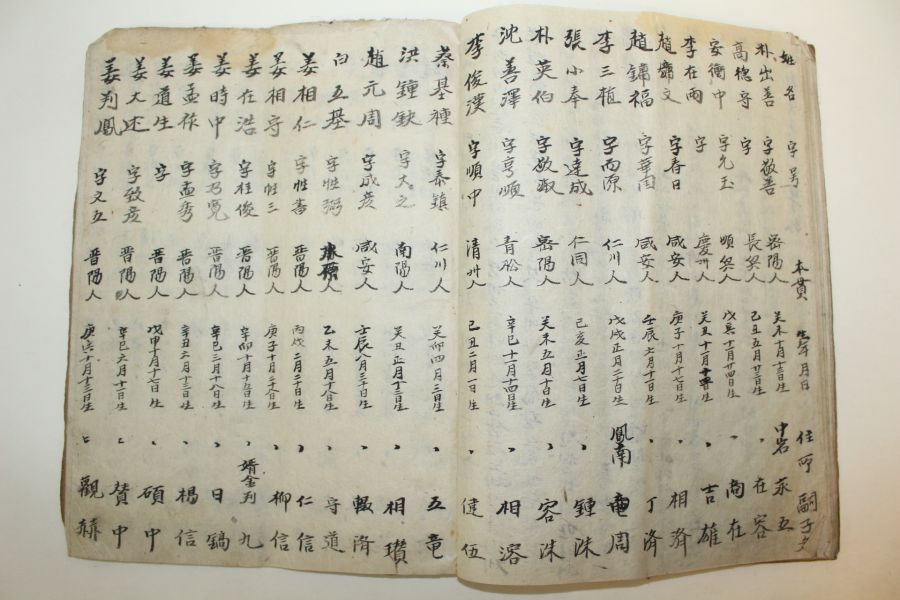 姓名 字号 本貫 生年月日 住所 嗣子女
朴出善 字敬善 岳陽人 癸未十月十三日生 中岩 永五
高稳守 字 長興人 己丑五月廿二日生 〃 在容
安衡中 字允玉 順興人 戊寅十一月廿四日生 〃 商在
李在雨 字 慶州人 癸丑十一月 日生 〃 吉雄
趙鏞文 字春日 咸安人 庚子十月十七日生 〃 相濟
趙鏞福 字華国 咸安人 壬辰七月十一日生 〃 丁濟
李三植 字而源 仁川人 戊戌正月二十日生 鳳南 周
張小奉 字達成 仁同人 己亥正月七日生 〃 鍾洙
朴英伯 字敬淑 岳陽人 癸未五月十日生 〃 容洙
沈善澤 字亨順 青松人 辛巳十一月十四日生 〃 相溶
李俊漢 字順中 清州人 己丑二月一日生 〃 健伍
蔡基種 字泰鎮 仁川人 癸卯四月三日生 〃 五竜
洪鍾欽 字大之 南陽人 癸丑正月十三日生 〃 相瓚
趙元周 字成彦 咸安人 壬辰八月三十日生 〃 濟
白五基 字性弼 人 乙未五月十八日生 〃 守道
姜相仁 字性善 晋陽人 丙戌二月二十日生 〃 仁信
姜相守 字性三 晋陽人 庚子十月二十八日生 〃 柳信
姜在浩 字桂俊 晋陽人 辛卯十月十五日生 〃 婿金列九
姜時中 字乃寛 晋陽人 辛巳三月十八日生 〃 日鎬
姜孟秼 字孟秀 晋陽人 辛丑六月十三日生 〃 楊信
姜道生 字 晋陽人 戊申十月十七日生 〃 碩中
姜大述 字敦彦 晋陽人 辛巳六月十一日生 〃 賛中
姜判鳳 字文五 晋陽人 庚 十月十三日生 〃 觀赫